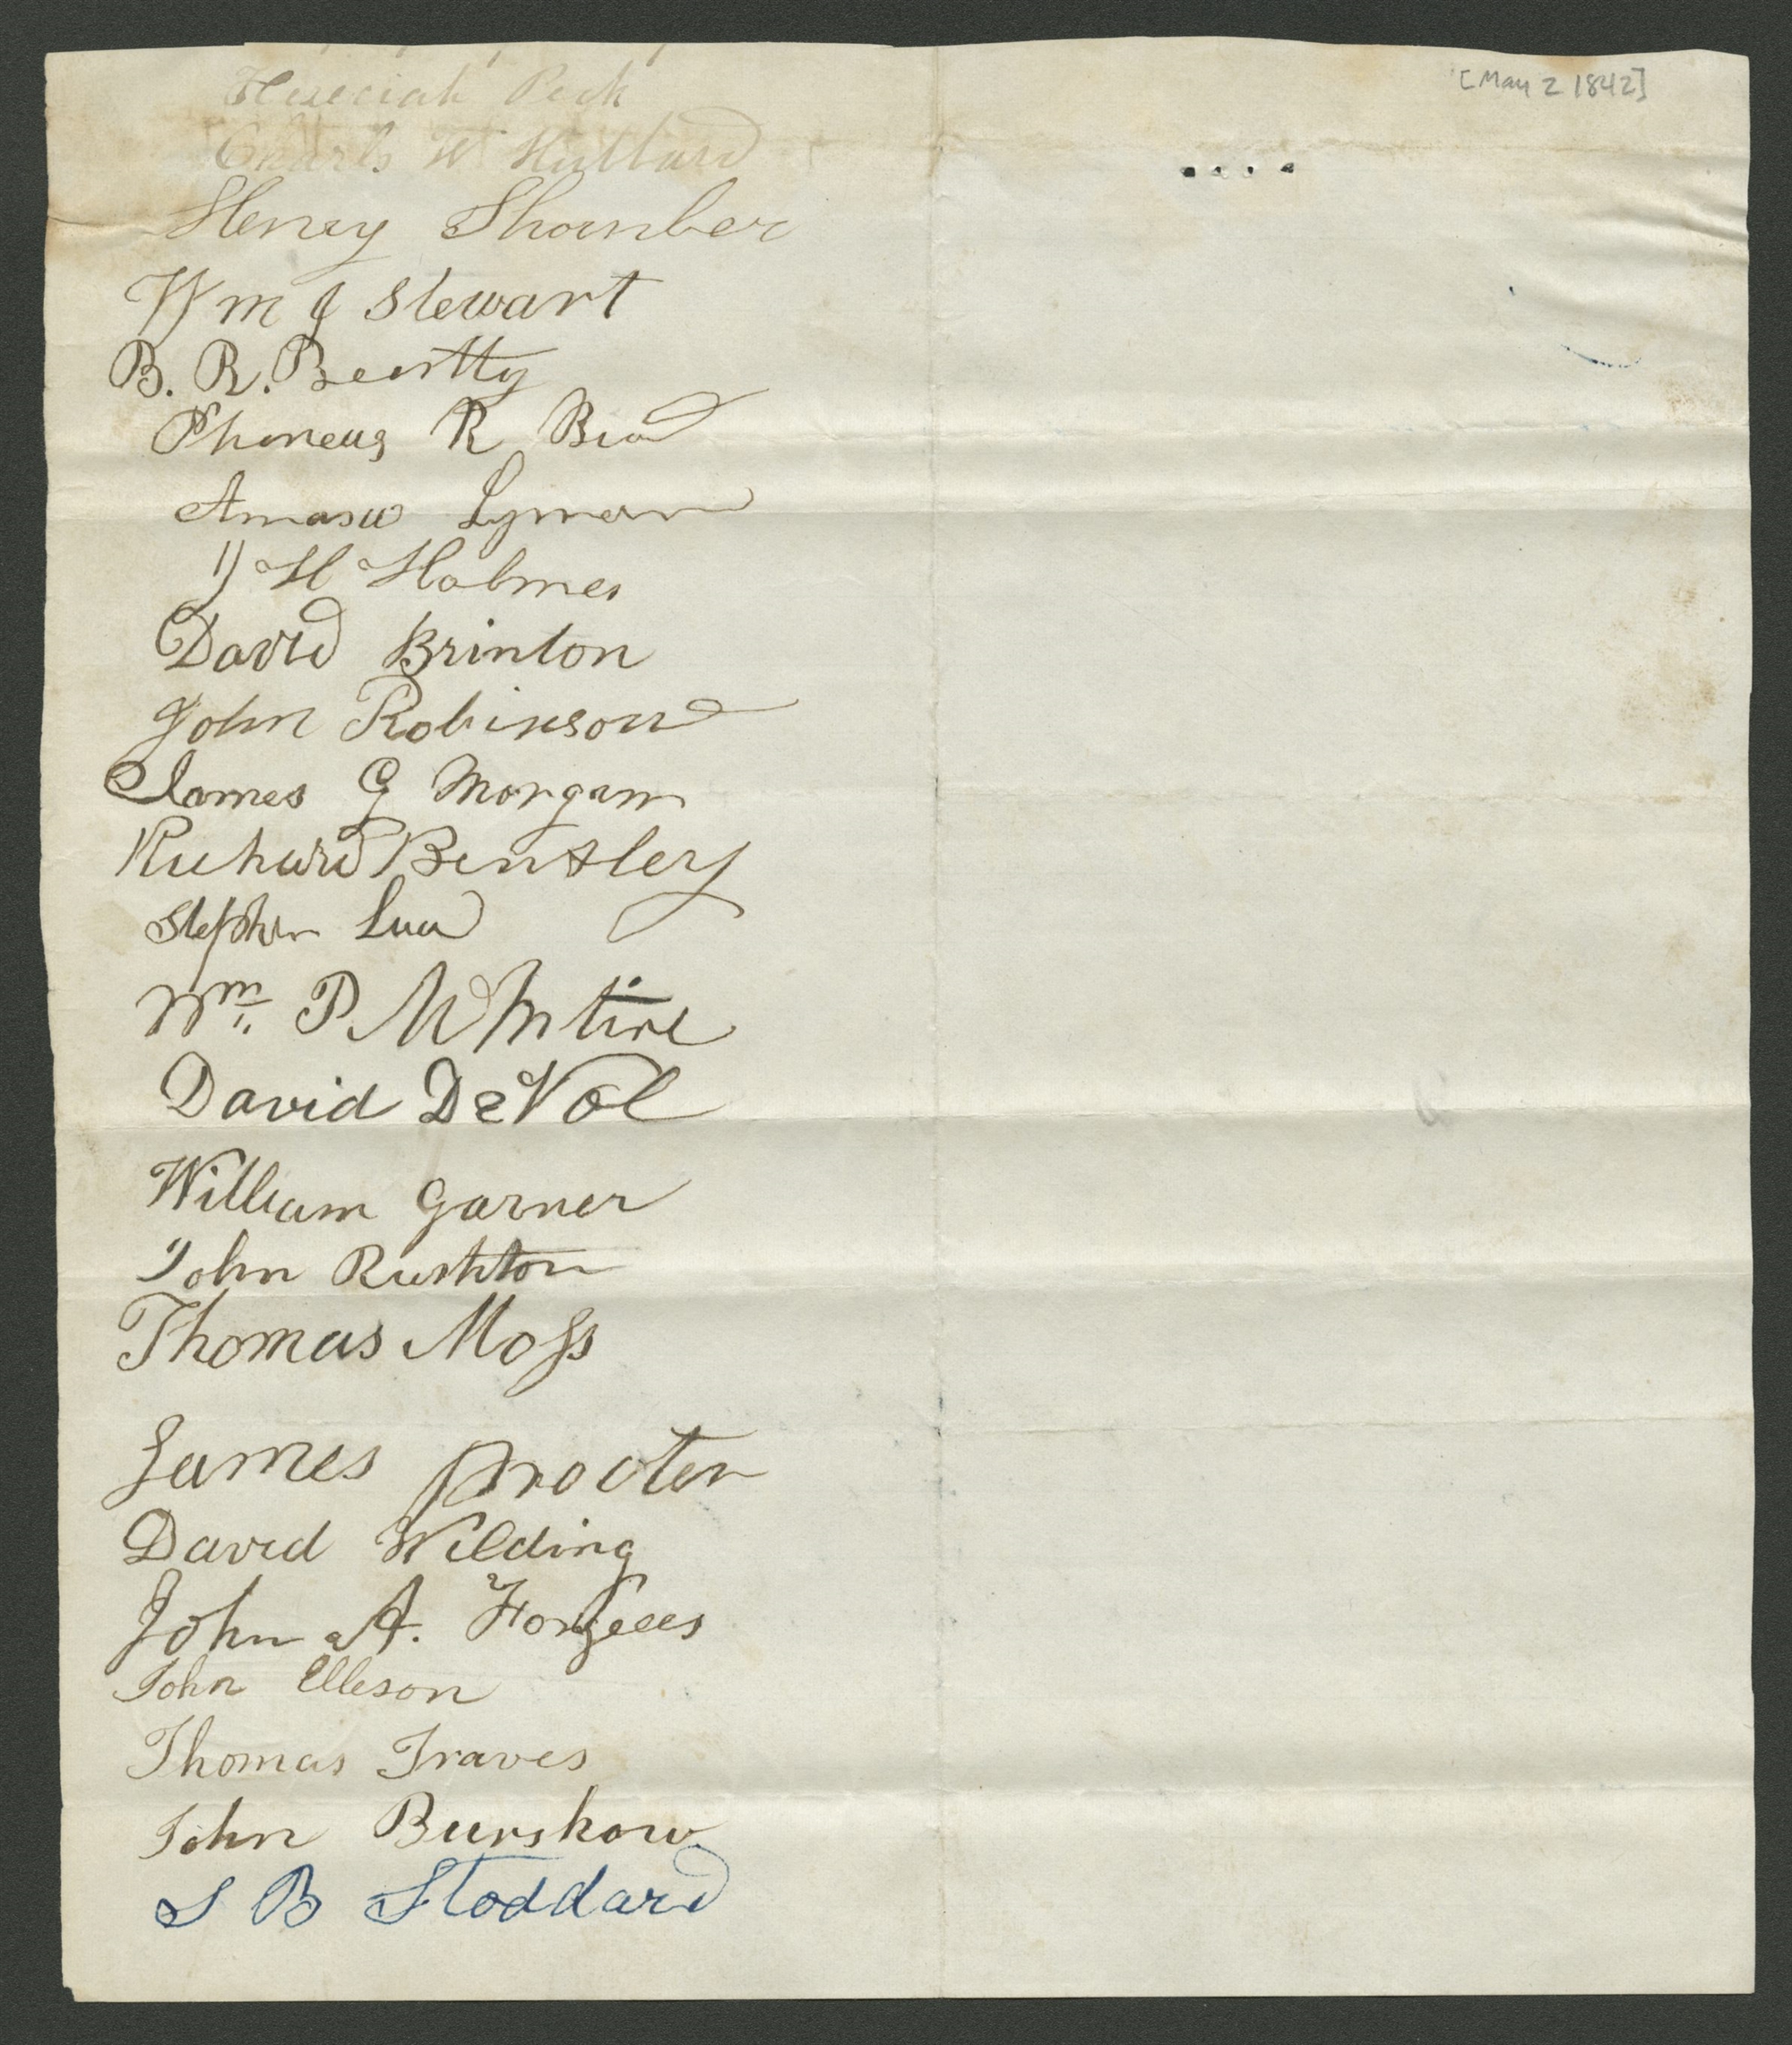 [May 2 1842]
Hezeciah Peck
Charls W Hubbard
Henry Shamber
Wm J Stewart
B. R. Beartty
Phineus R Bird
Amasa Lyman
J H Holmes
David Brinton
John Robinson
James G Morgan
Richard Bentley
Stephen Luce
Wm. P. McIntire
David DeVol
William Garner
John Rushton
Thomas Moss
James Procter
David Wilding
John A. Forgeus
John Elleson
Thomas Traves
John Burskow
S B Stoddard